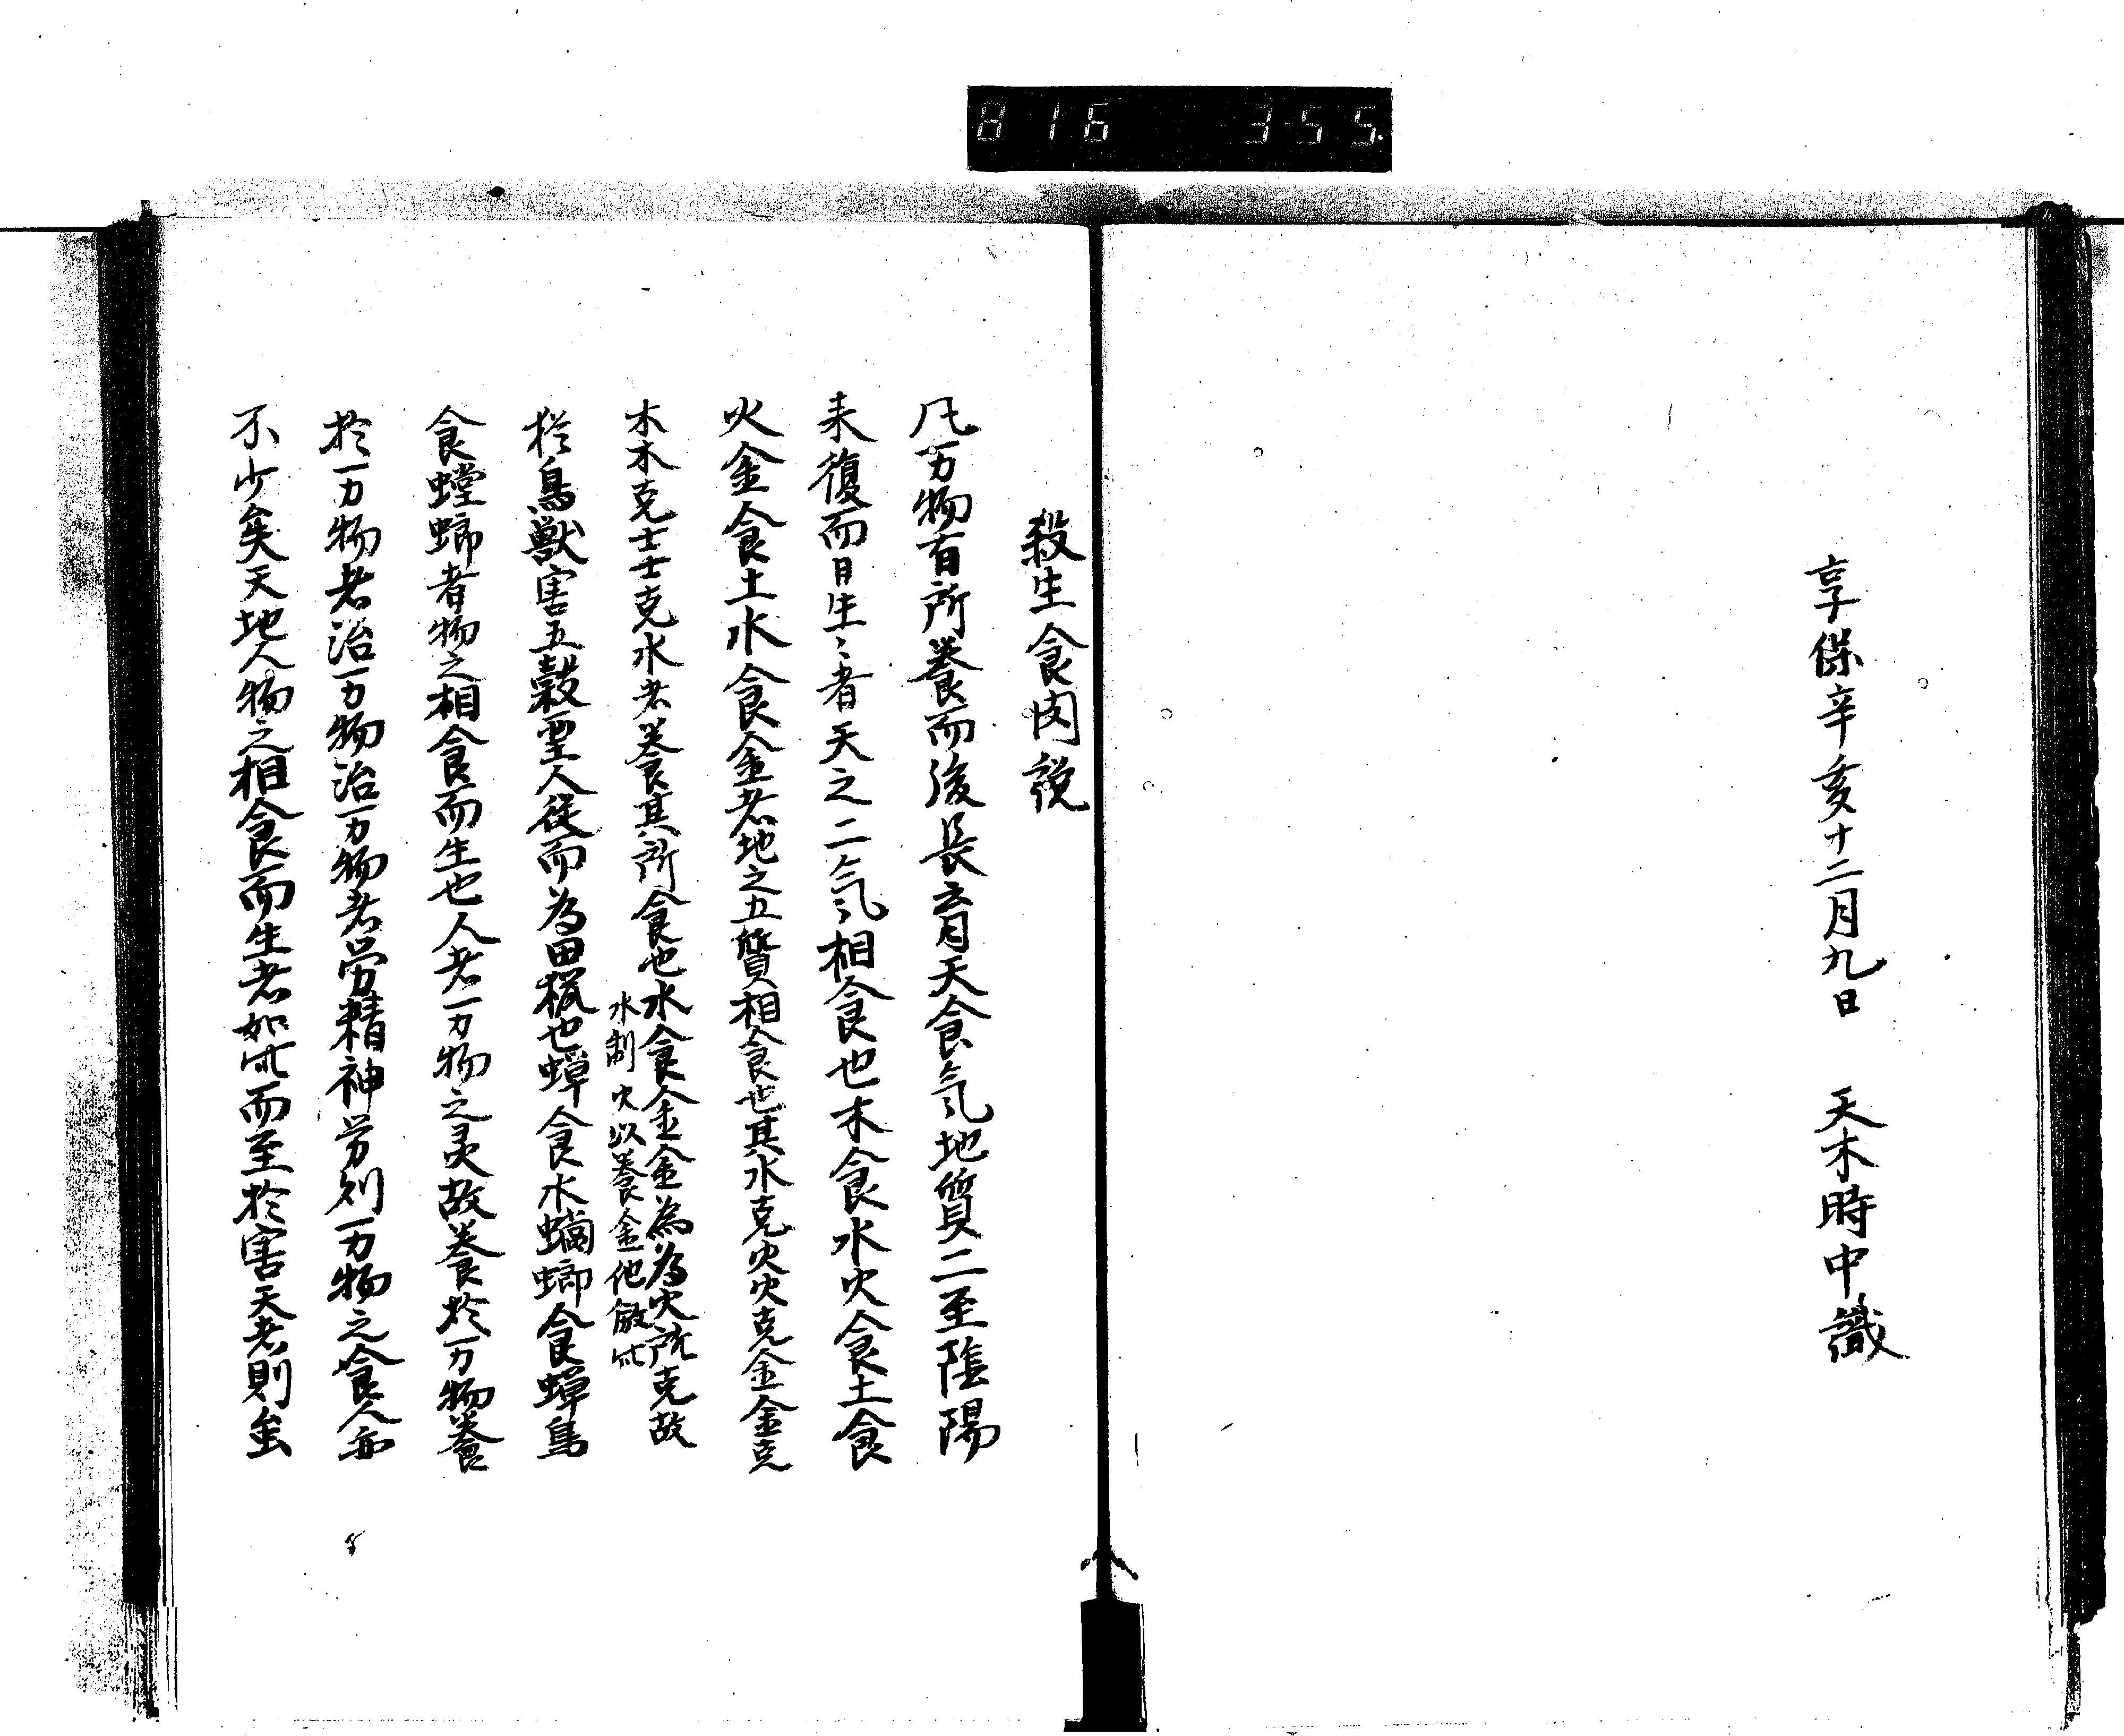 816 355
享保辛亥十二月九日 天木時中識
殺生食肉説
凡万物有所養而後長育天食気地質二至陰陽
来復而日生〻者天之二気相食也木食水火食土食
火金食土水食金者地之五質相食也其水克火火克金金克
木木克土土克水者養其所食也水食金金為為火所克故
水制火以養金他倣此
於鳥獣害五穀聖人従而為田猟也蟫食水蠲螂食蟫鳥
食螳螂者物之相食而生也人者万物之灵故養於万物養
於万物者治万物治万物者労精神労則万物之食人亦
不少矣天地人物之相食而生者如此而至於害天者則虽